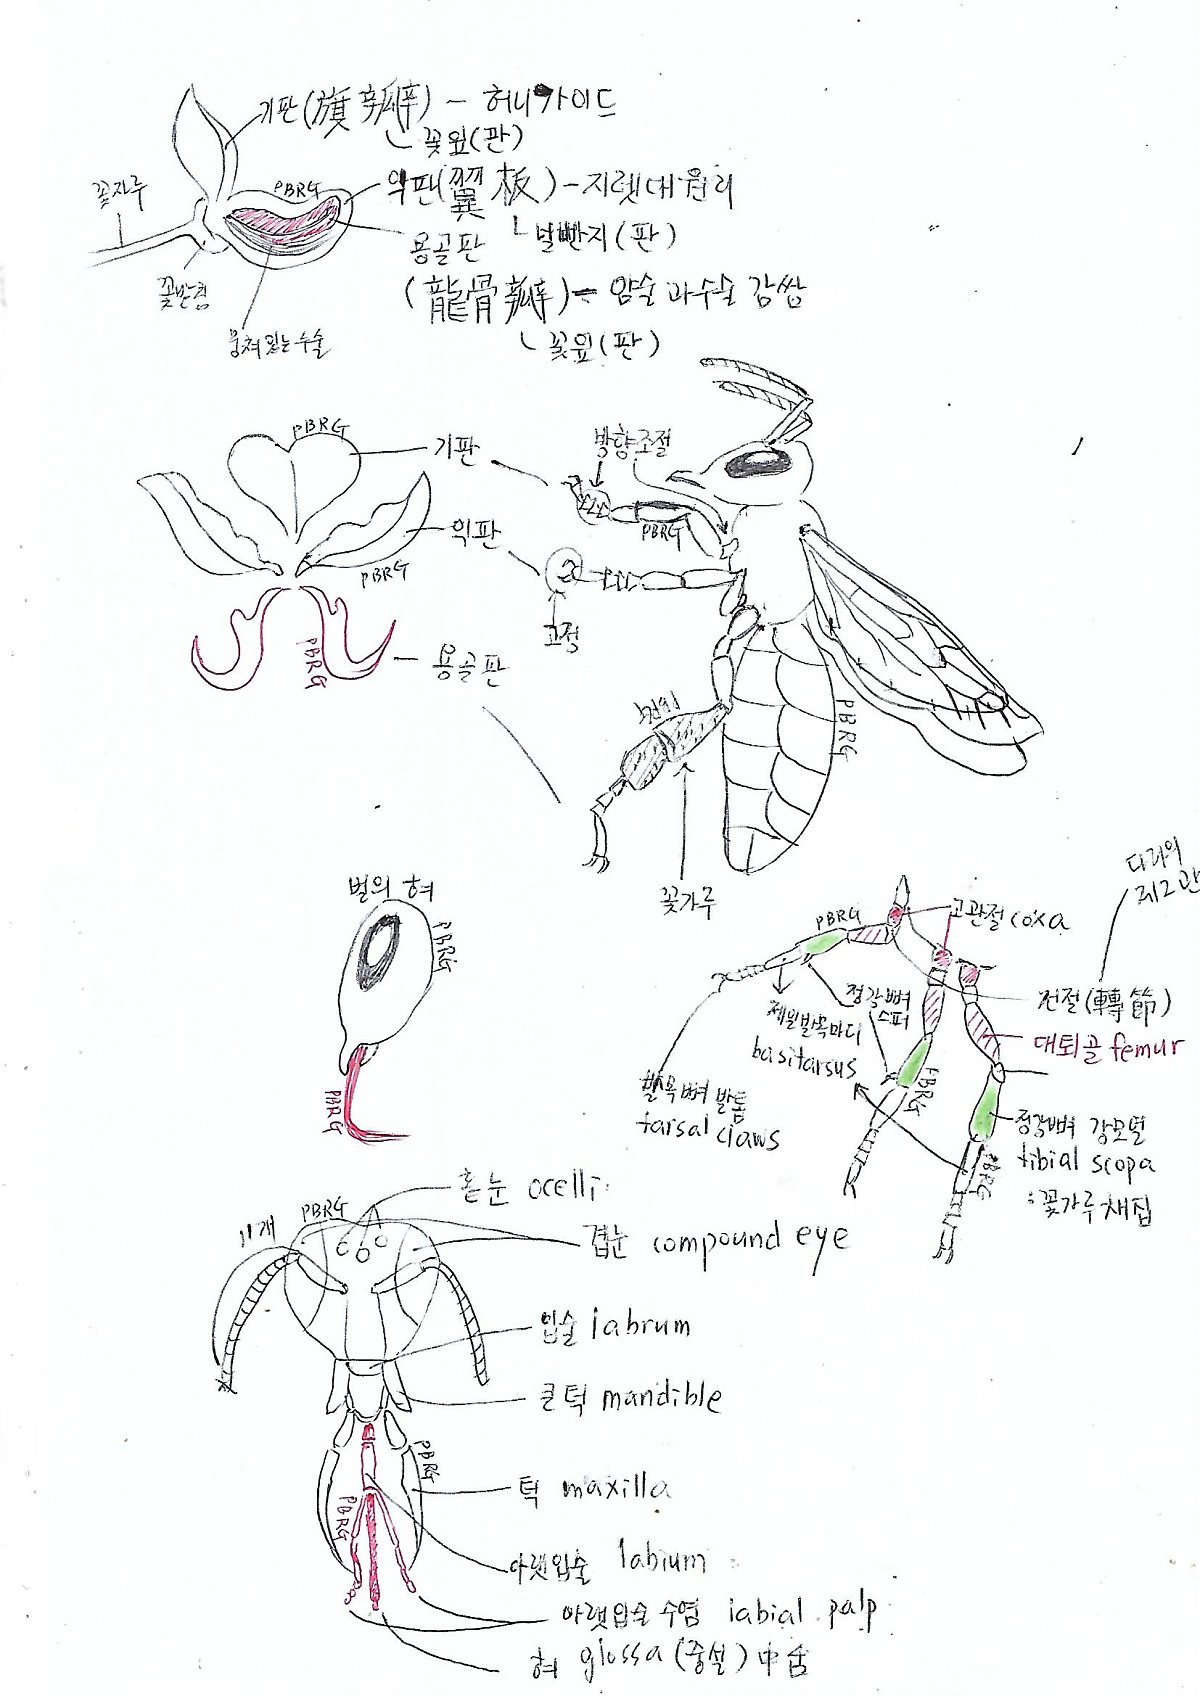 기판(旗瓣) - 허니가이드
꽃잎(판)
꽃자루
PBRG
익판(翼板) - 지렛대 원리
날빤지(판)
용골판
(龍骨瓣) - 암술과 수술 감쌈
꽃잎(판)
꽃받침
뭉쳐있는 수술
PBRG
기판
익판
PBRG
PBRG
용골판
방향조절
PBRG
고정
PBRG
꽃가루
벌의 혀
PBRG
PBRG
다리의
제2관
PBRG
고관절 coxa
전절(轉節)
대퇴골 femur
정강뼈
스퍼
제일발목마디
basitarsus
발목뼈 발톱
tarsal claws
PBRG
정강뼈 강모털
tibial scopa
:꽃가루 채집
PBRG
홑눈 ocelli
PBRG
11개
겹눈 compound eye
입술 labrum
큰턱 mandible
PBRG
턱 maxilla
PBRG
아랫입술 labium
아랫입술 수염 labial palp
혀 glossa (중설) 中舌